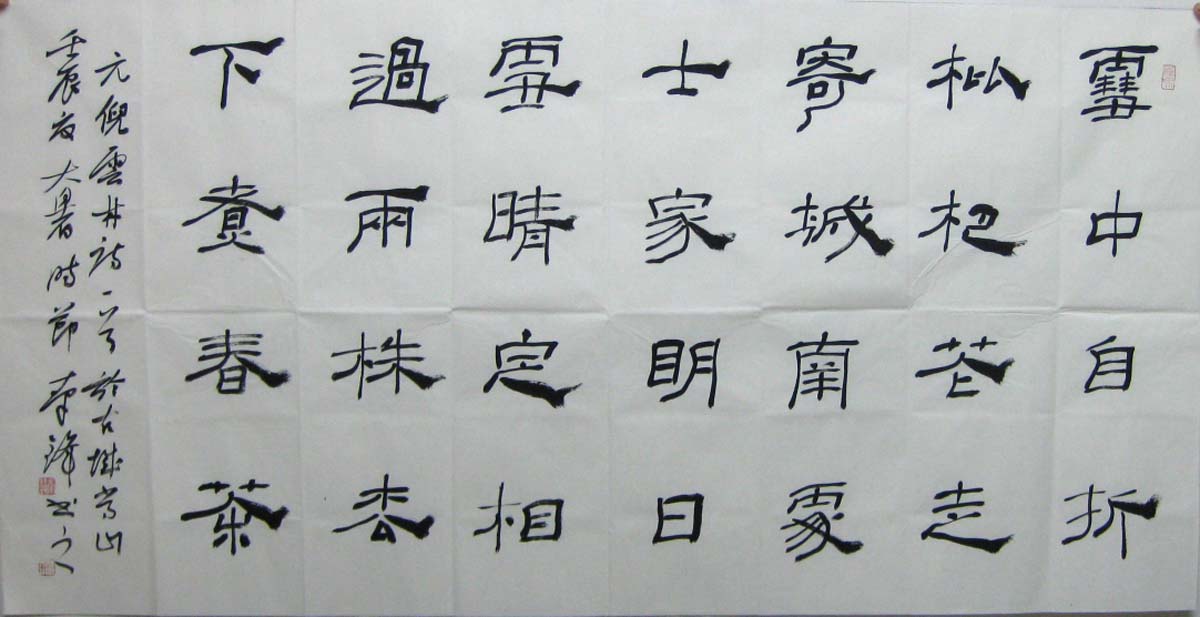 雪中自折
枇杷花走
寄城南處
士家明日
雪晴定相
過兩株枀
下煮春茶
元倪雲林詩一首於古城常山
壬辰夏大暑時節鋒書